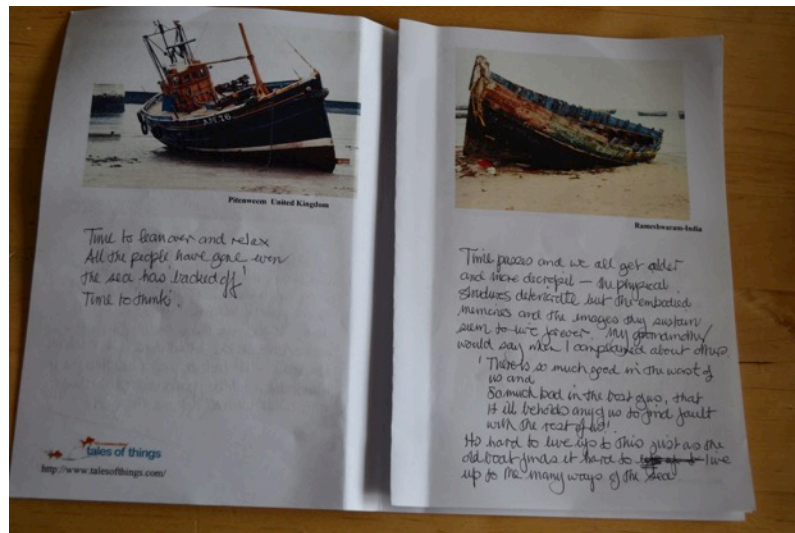 AH 16
Pittenweem United Kingdom
Time to lean over and relax
All the people have gone even
the sea has backed off!
Time to think.
tales of things
http://www.talesofthings.com/
Rameshwaram-India
Time passes and we all get older
and more decrepit — the physical
structures deteriorate but the embodied
memories and the images they sustain
seem to live forever. My grandmother
would say when I complained about others.
'There is so much good in the worst of
us and
So much bad in the best of us, that
It ill beholds any of us to find fault
with the rest of us!'
Its hard to live up to this just as the
old boat finds it hard to live
up to the many ways of the sea